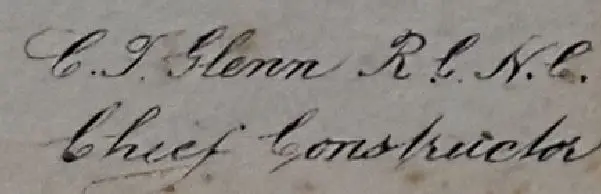 C. T. Glenn R. C. N. C.
Chief Constructor